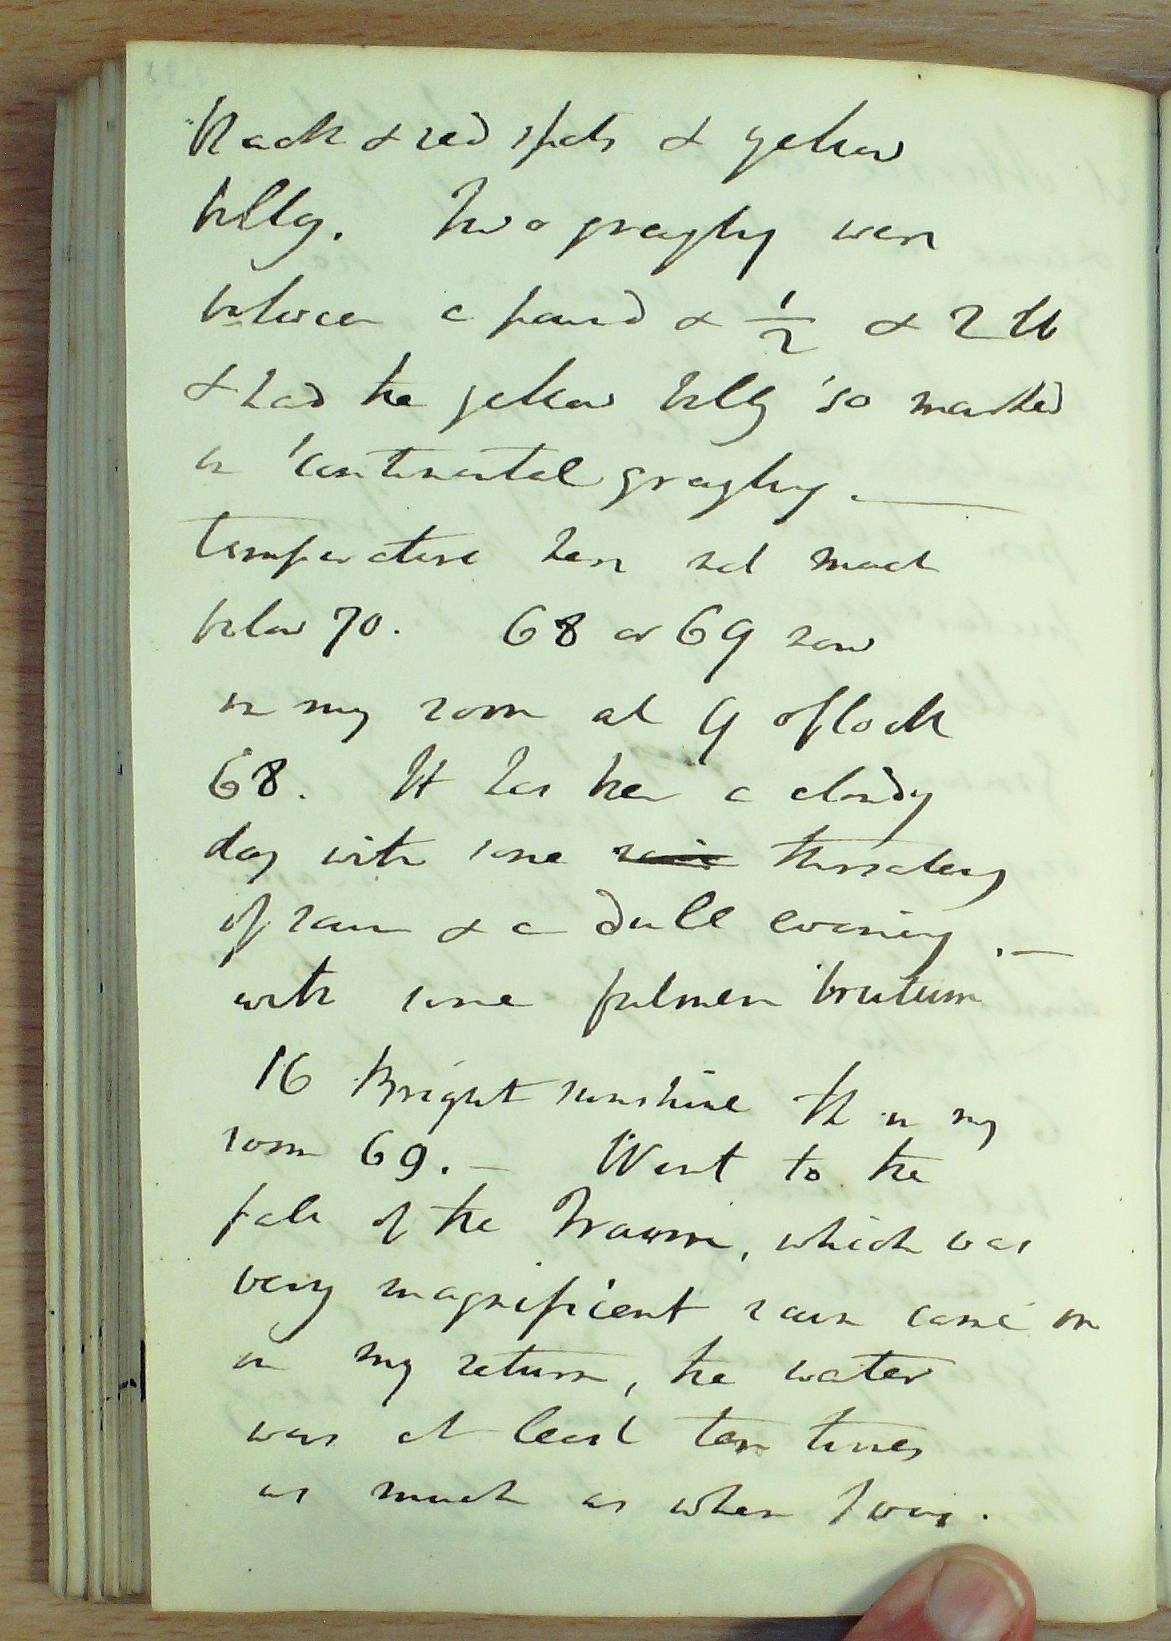 black & red spots & yellow
belly. Two grayling were
between a pound & 1/2 & 2 lb
& had the yellow belly so marked
in continental grayling. —
temperature here not much
below 70. 68 or 69 now
in my room at 9 o'clock
68. It has been a cloudy
day with some rain
of rain & a dull evening. —
with some fulmen brutum
16 Bright sunshine Th in my
room 69. — Went to the
fall of the Traun, which was
very magnificent rain came on
on my return, the water
was at least ten times
as much as when I was.